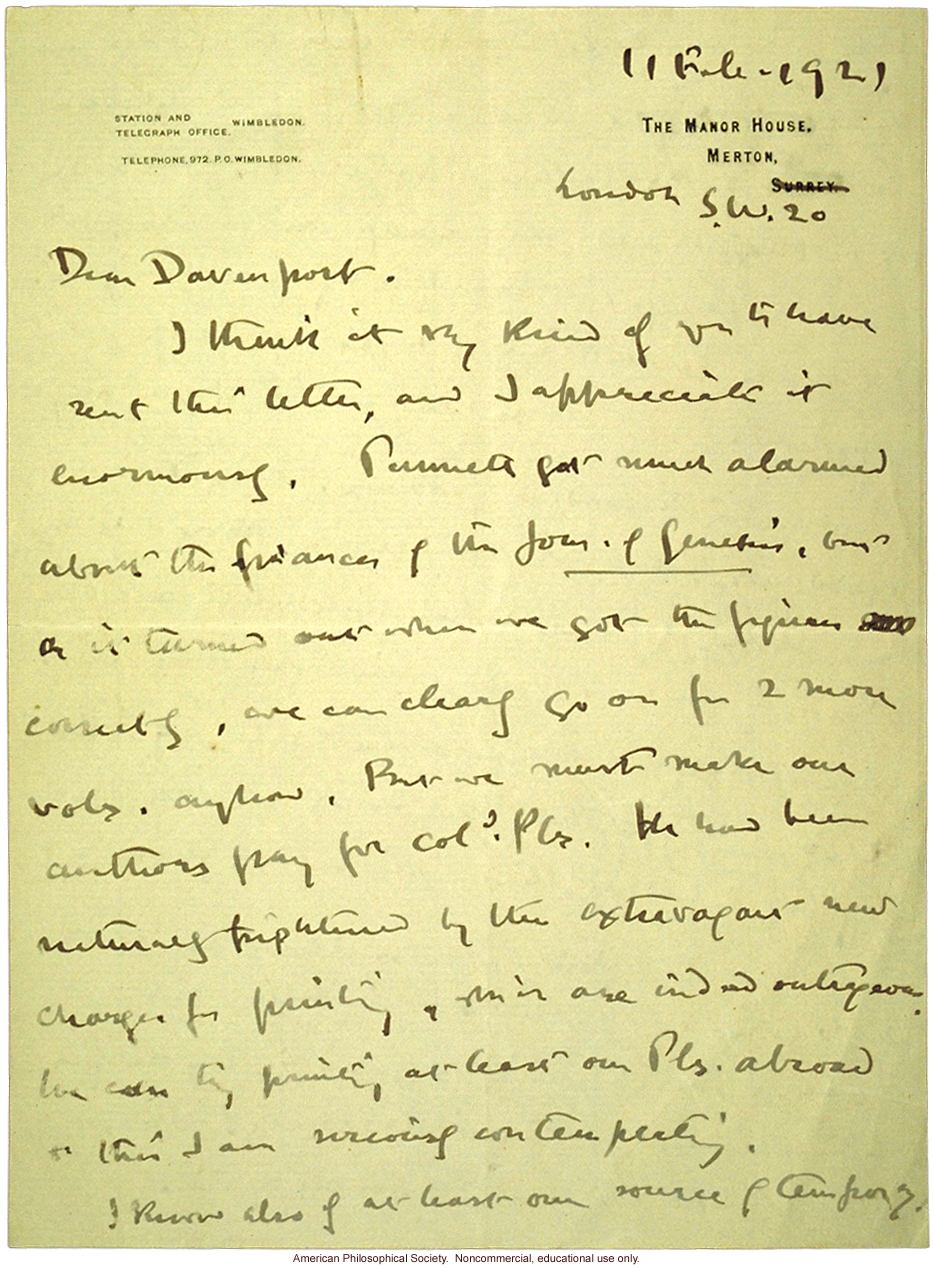 11 Feb. 1921
STATION AND
TELEGRAPH OFFICE, WIMBLEDON.
TELEPHONE, 972. P.O. WIMBLEDON.
THE MANOR HOUSE,
MERTON,
SURREY.
London S.W. 20
Dear Davenport.
I think it very kind of you to have
sent this letter, and I appreciate it
enormously. Punnett got much alarmed
about the finances of the Jour. of Genetics, but
as it turned out when we got the figures
correctly, we can clearly go on for 2 more
vols. anyhow. But we must make our
authors pay for col'd. Pls. He had been
naturally frightened by the extravagant new
charges for printing, which are indeed outrageous.
We can try printing at least our Pls. abroad
& this I am seriously contemplating.
I know also of at least one source of temporary
American Philosophical Society. Noncommercial, educational use only.